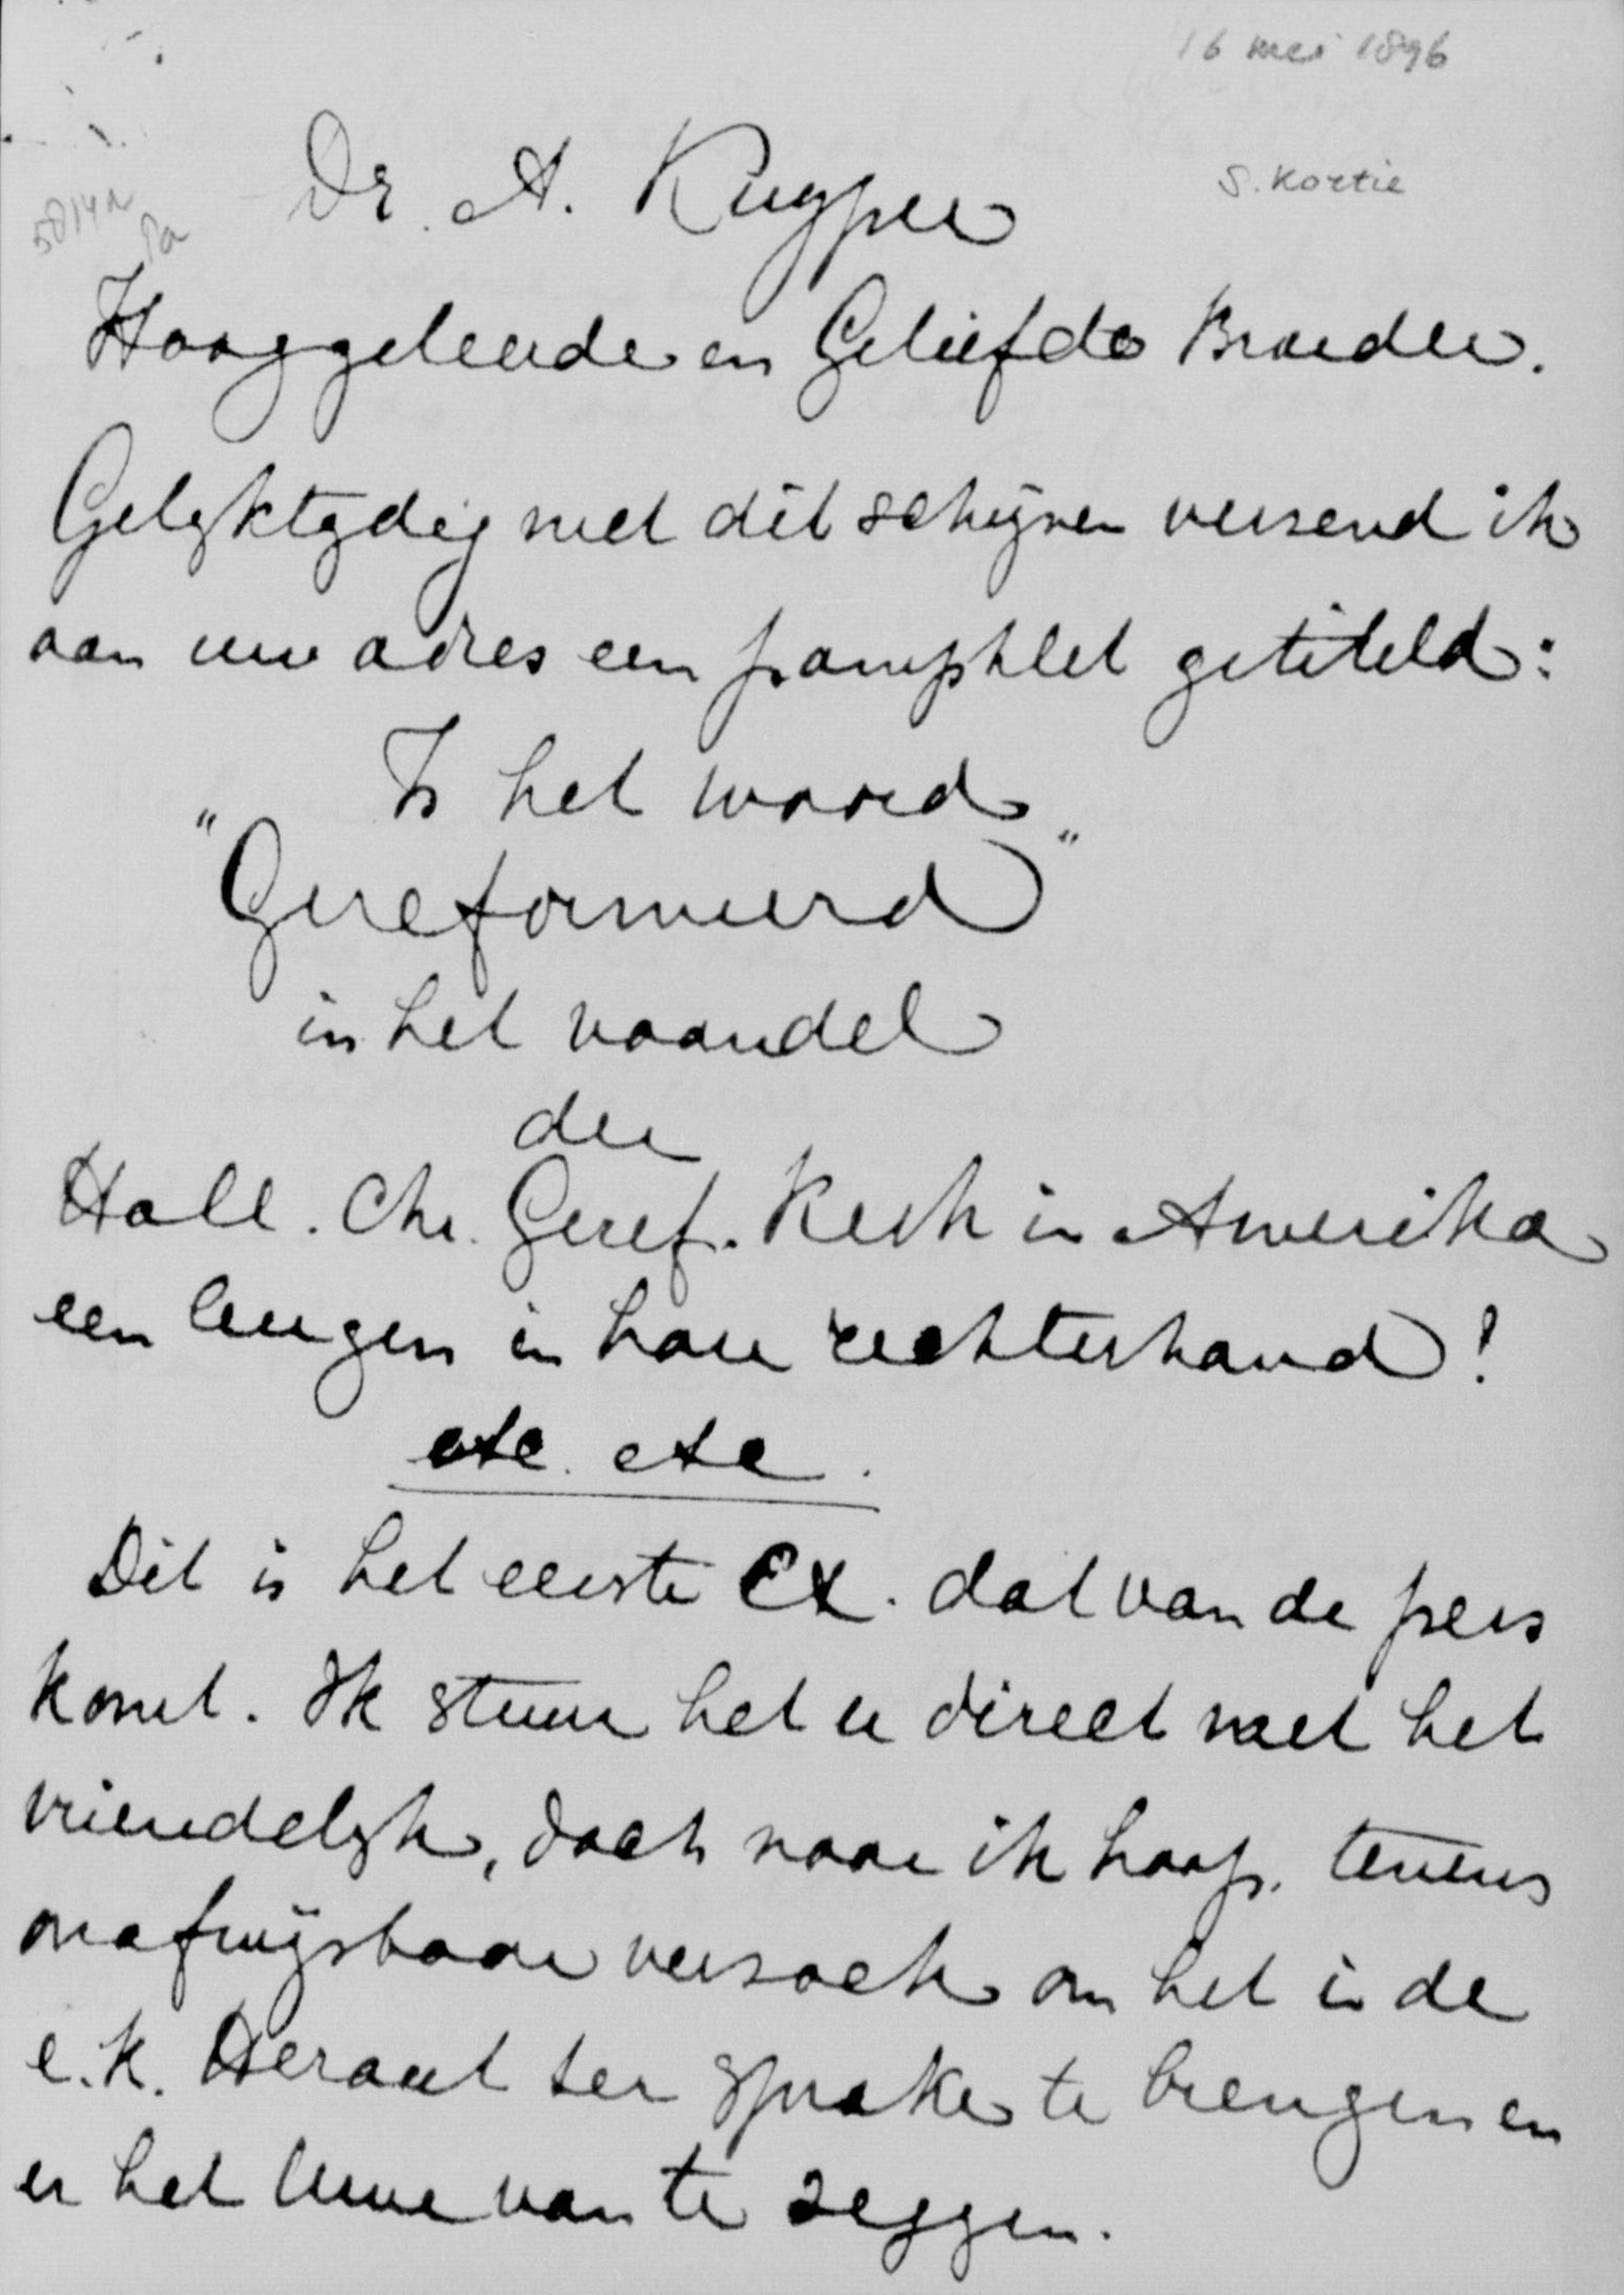 16 mei 1896
S. Kortie
Dr. A. Kuyper
Hooggeleerde en Geliefde Broeder.
Gelyktydig met dit schrijven versend ik
aan uw adres een pamphlet getiteld:
Is het woord
"Gereformeerd"
in het vaandel
der
Holl. Chr. Geref. Kerk in Amerika
een leugen in hare rechterhand!
etc. etc.
Dit is het eerste Ex. dat van de pers
komt. Ik stuur het u direct met het
vriendelyk, doch naar ik hoop, tevens
onafwijsbaar verzoek om het in de
e.k. Heraut ter sprake te brengen en
er het Uwe van te zeggen.